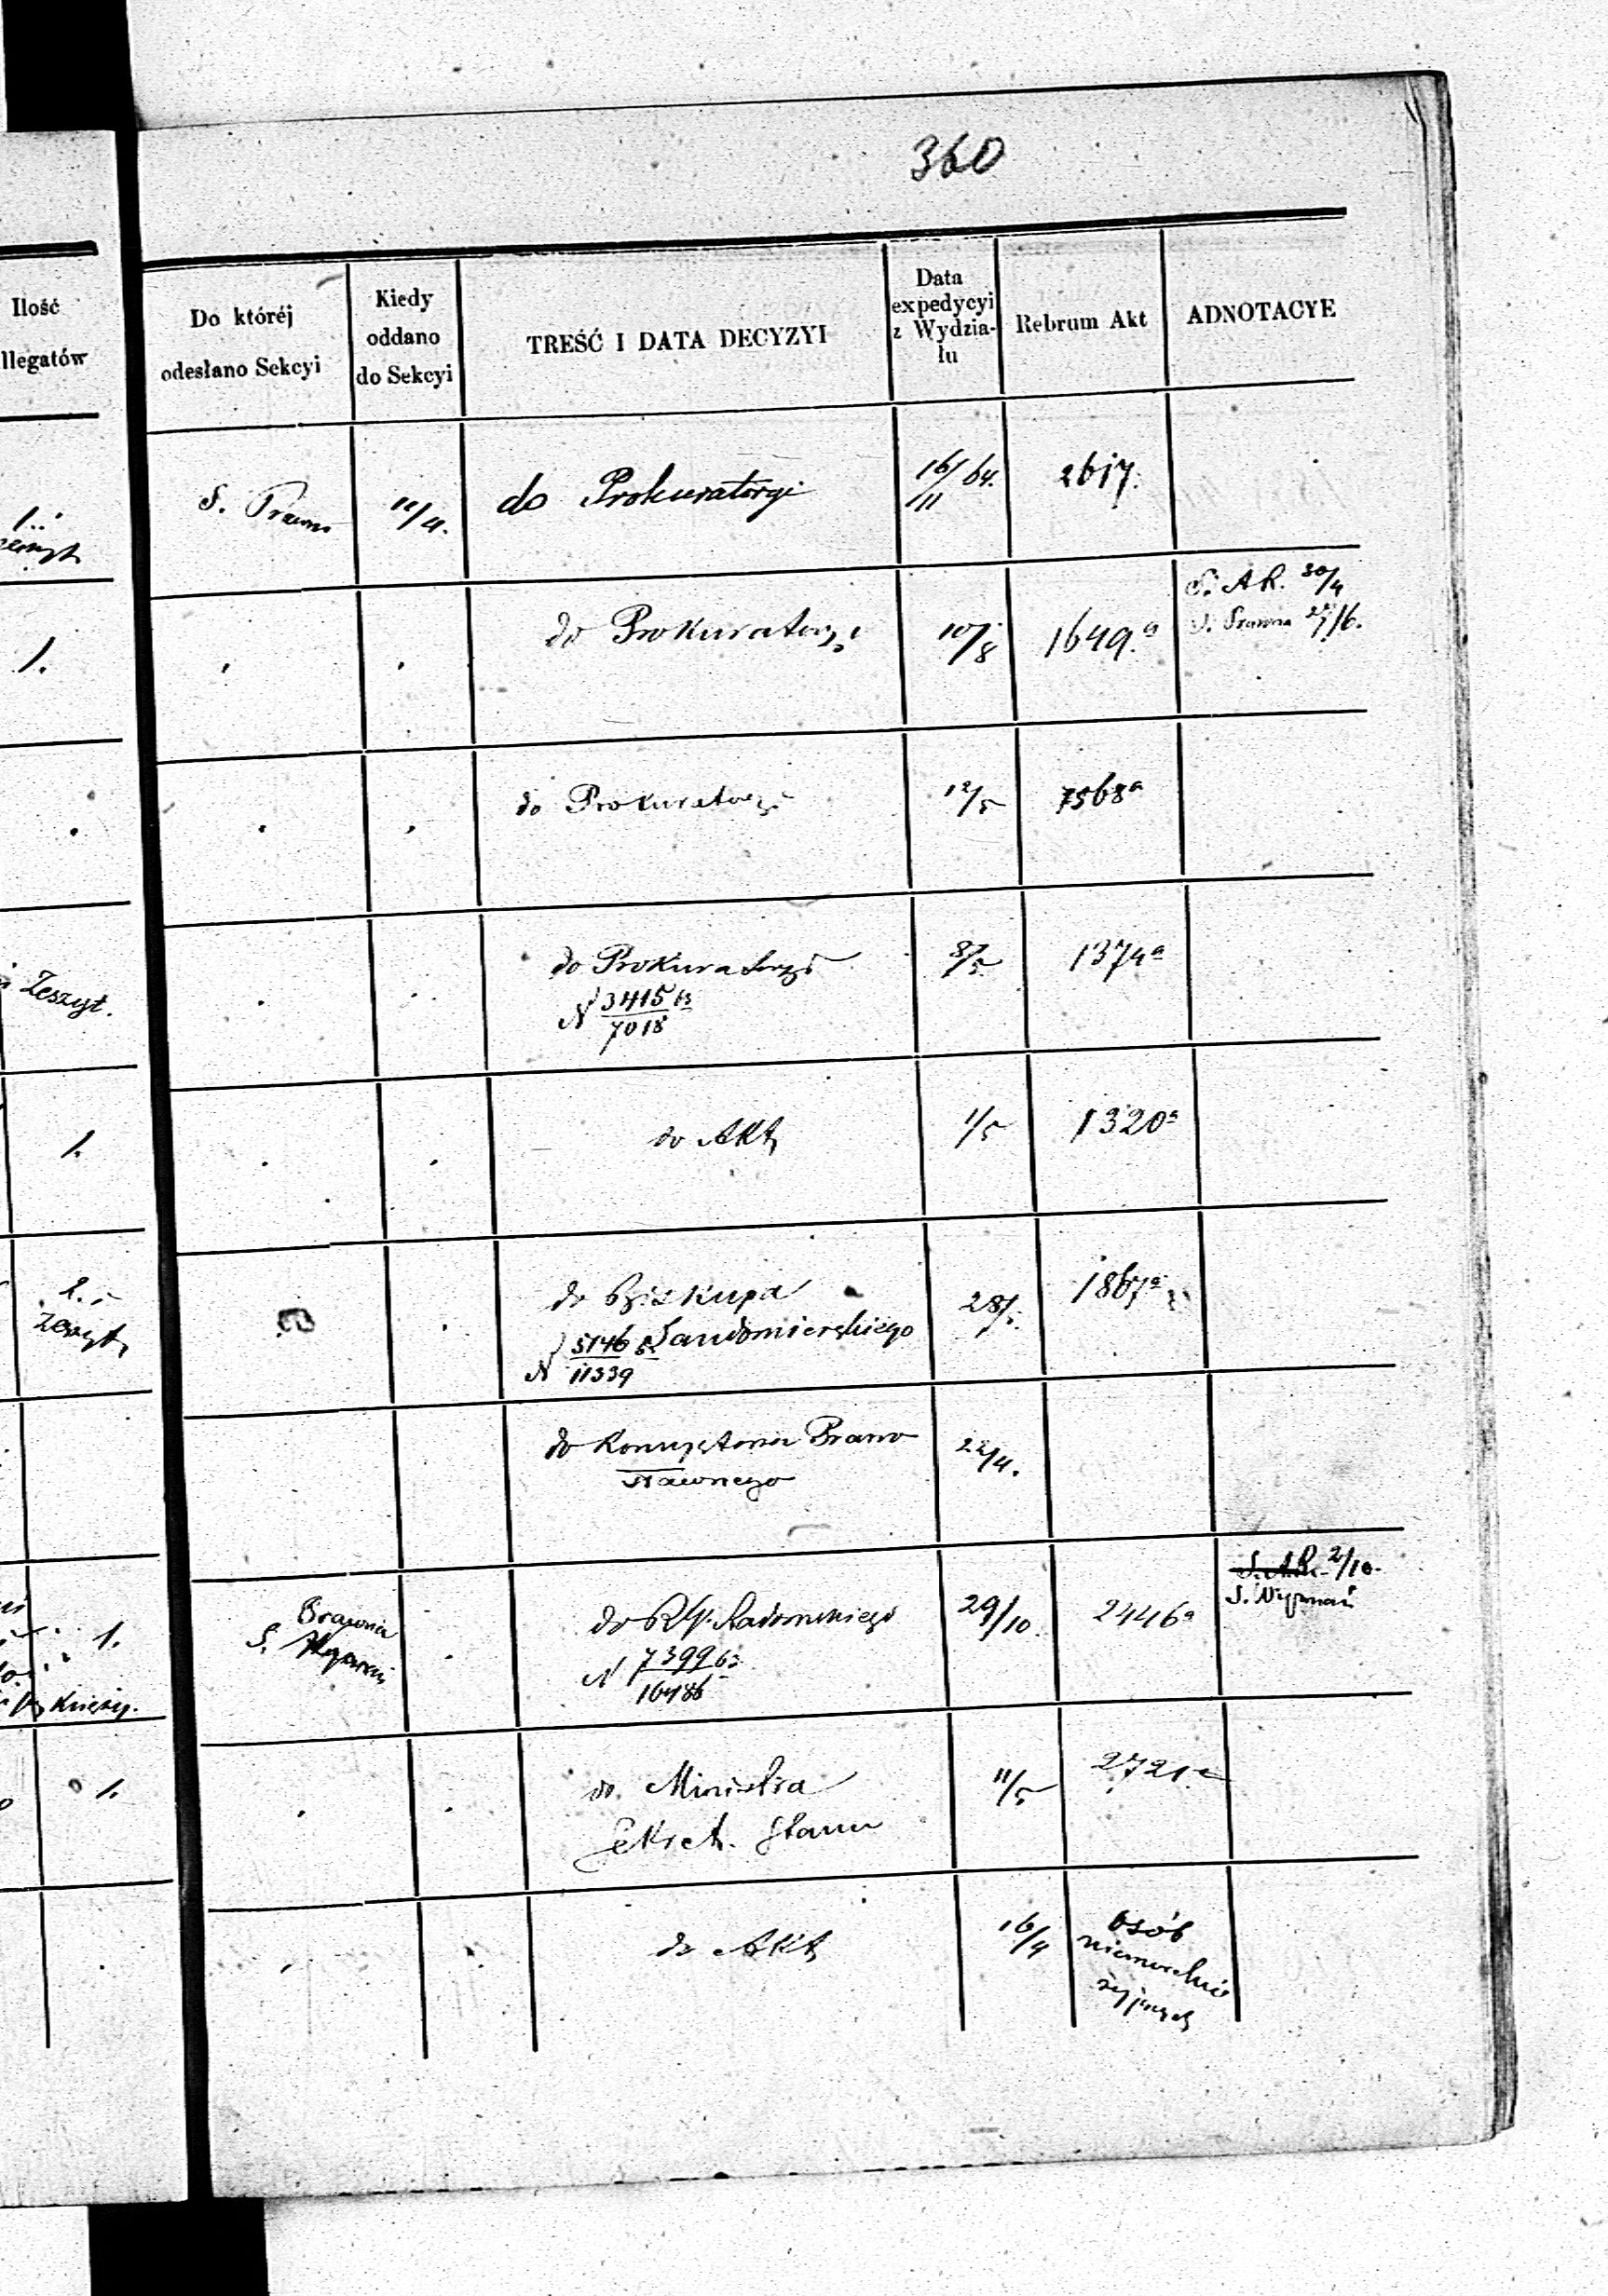 360
Ilość
llegatów
Do któréj
odesłano Sekcyi
Kiedy
oddano
do Sekcyi
TREŚĆ I DATA DECYZYI
Data
expedycyi
z Wydzia-
łu
Rebrum Akt
ADNOTACYE
1.
S. Prawna
11/4.
do Prokuratorji
16/64.
/11
2617.
1.
do Prokuratorji
10/8
1649.a
S. A R. 30/4
S. Prawna 22/6.
do Prokuratorji
12/5
7568a
Zeszyt.
do Prokuratorji
N 3415 63
7018
8/5
1374a
1.
do Akt
1/5
1320a
2. i
Zeszyt
do Biskupa
Sandomierskiego
N 5146
11339
28/
1867a
do Konsystorza Prawo
sławnego
22/4.
1.
Księży.
Prawna
S.
do RG. Radomskiego
N 7399 63
16486
29/10.
2446a
S. A R. 2/10.
S. Wyznań
1.
do Ministra
Sekret. Stanu
11/5
2721a
do Akt
16/4
osób